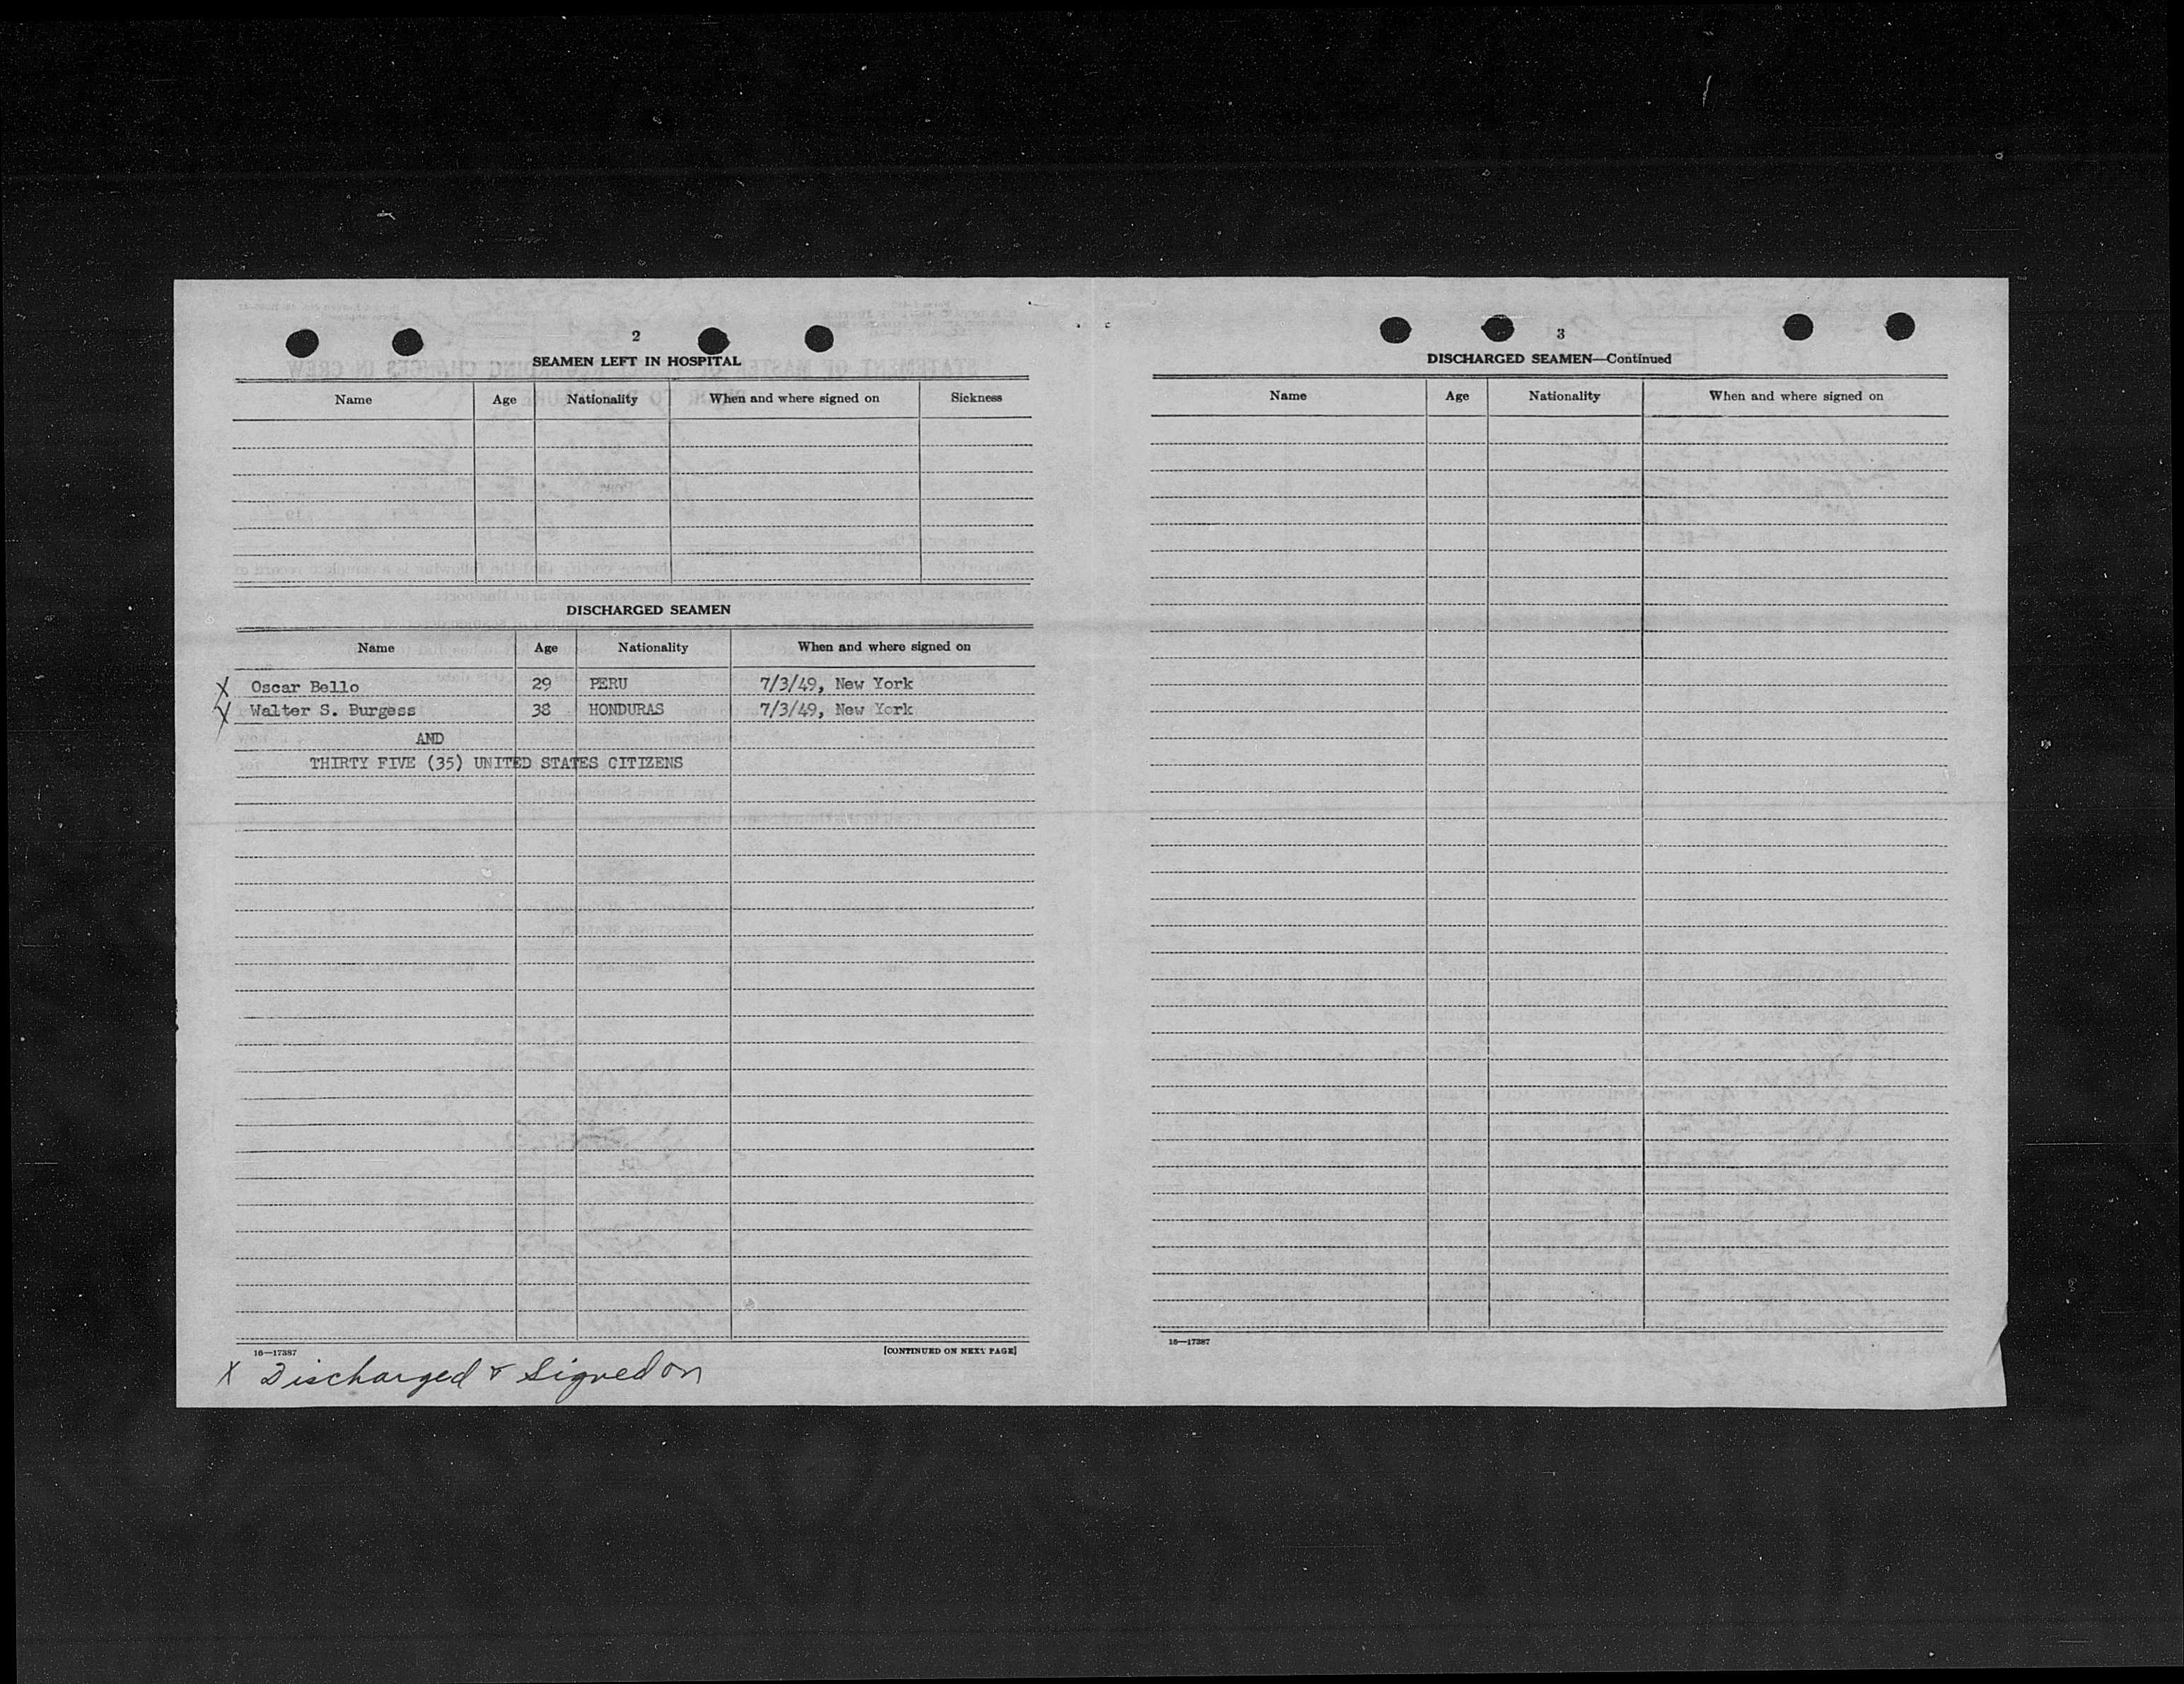 2
SEAMEN LEFT IN HOSPITAL
Name Age Nationality When and where signed on Sickness
DISCHARGED SEAMEN
Name Age Nationality When and where signed on
X Oscar Bello 29 PERU 7/3/49, New York
X Walter S. Burgess 38 HONDURAS 7/3/49, New York
AND
THIRTY FIVE (35) UNITED STATES CITIZENS
16—17387 [CONTINUED ON NEXT PAGE]
X Discharged & Signed on
3
DISCHARGED SEAMEN—Continued
Name Age Nationality When and where signed on
16—17387